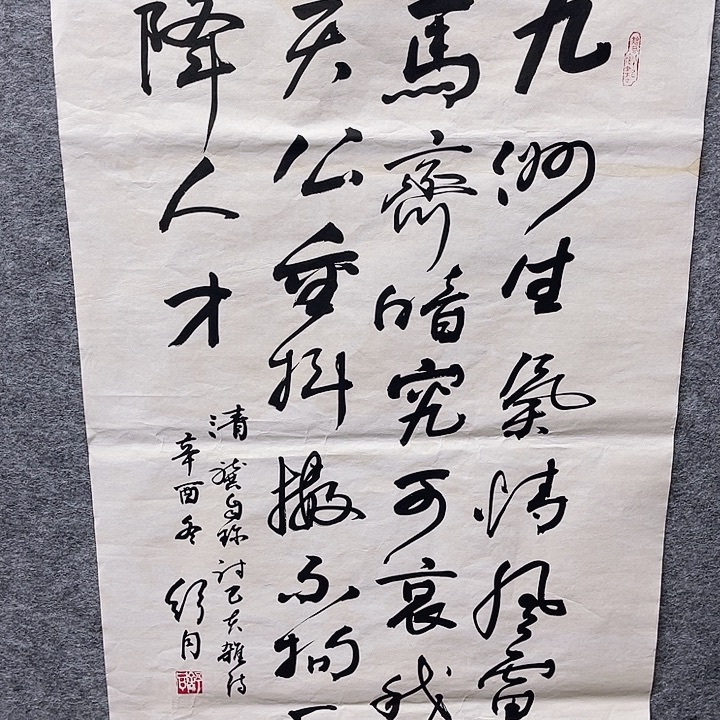 九洲生氣恃風雷
馬齊暗究可哀我
天公重抖擻不拘一
降人才
清龔自珍討己亥雜詩
辛酉冬 舒同
舒同